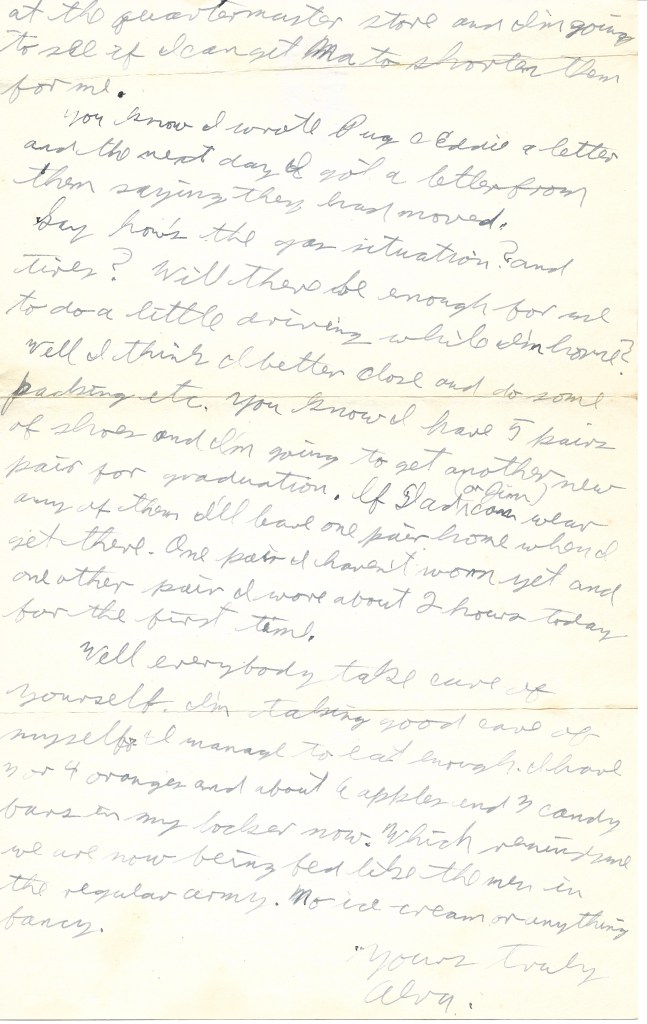 at the quartermaster store and I'm going
to see if I can get Ma to shorten them
for me.
You know I wrote Pug & Eddie a letter
and the next day I got a letter from
them saying they had moved.
Say how's the gas situation? and
tires? Will there be enough for me
to do a little driving while I'm home?
Well I think I better close and do some
packing etc. You know I have 5 pairs
of shoes and I'm going to get another new
pair for graduation. If Dad (or Jim) can wear
any of them I'll leave one pair home when I
get there. One pair I haven't worn yet and
one other pair I wore about 2 hours today
for the first time.
Well everybody take care of
yourself. I'm taking good care of
myself. I manage to eat enough. I have
3 or 4 oranges and about 6 apples and 3 candy
bars in my locker now. Which reminds me
we are now being fed like the men in
the regular army. No ice-cream or anything
fancy.
Yours truly
Alva.